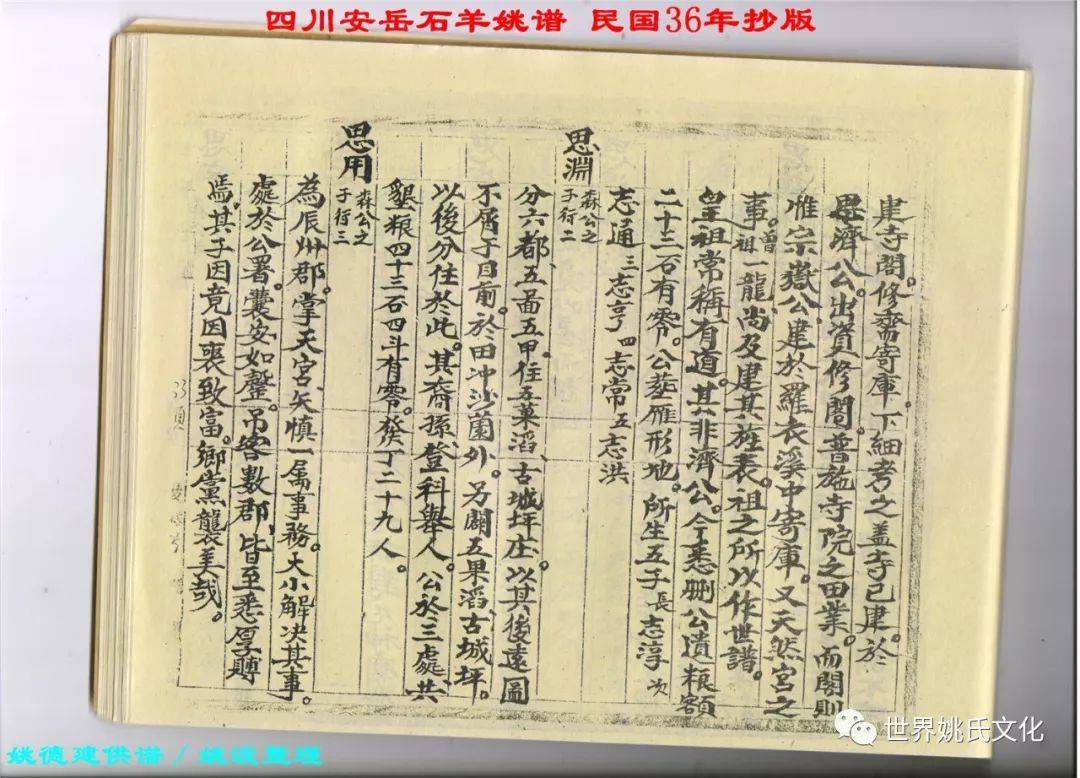 四川安岳石羊姚谱 民国36年抄版
建寺阁。修斋寄庫。下細考之盖寺已建於
思濟公。出資修閣。普施寺院之田業。而閣則
惟宗嶽公建於羅衣溪中寄庫。又天然宮之
事。曾祖一龍尚及建其旌表。祖之所以作世譜。
皇祖常稱有道。其非濟公。今悉刪公遺粮額
二十三石有零。公塟雁形地。所生五子長志淳次
志通三志亨四志常五志洪
思淵森公之子行二
分六都、五啚五甲住五菓滔、古城坪庄。以其後遠圖
不屑于目前。於田冲沙薗外。另闢五果滔、古城坪。
以後分住於此。其裔孫登科舉人。公於三處共
墾粮四十三石四斗有零。發丁二十九人。
思用森公之子行三
為辰州郡。掌天宮、矢慎一属事務。大小解决其事。
處於公署。囊安如罄。吊客數郡，皆至悉厚賻
焉。其子因竟因喪致富。鄉黨襲美哉。
世界姚氏文化
姚德建供谱／姚波整理